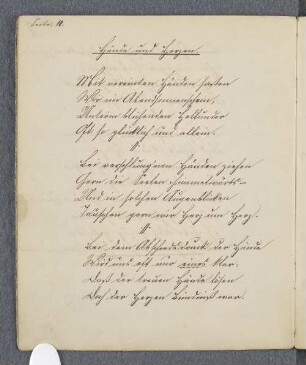 Seite. 10.
Hände und Herzen.
Mit vereinten Händen saßen
Wir im Abendsonnenschein,
Unterm blühenden Hollunder
Oft so glücklich und allein.
Bei verschlungnen Händen ziehen
Gern die Seelen himmelwärts –
Und in solchen Augenblicken
Tauschen gern wir Herz um Herz.
Bei dem Abschiedsdruck der Hände
Wird uns oft nur eines klar:
Daß der treuen Hände lösen
Doch der Herzen Bündniß war.